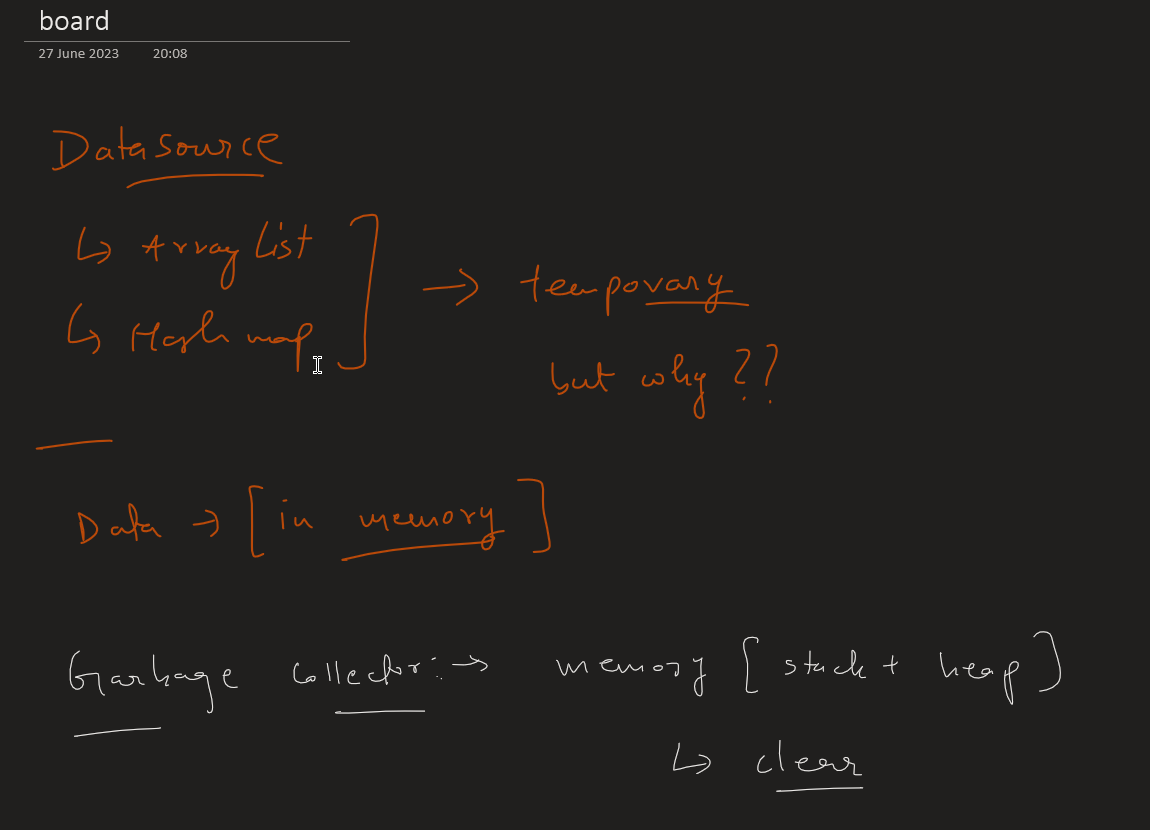 board
27 June 2023 20:08
Data source
↳ Array List
→ temporary
↳ Hash map
but why ??
Data → [in memory]
Garbage collector :→ memory [stack + heap]
↳ clear